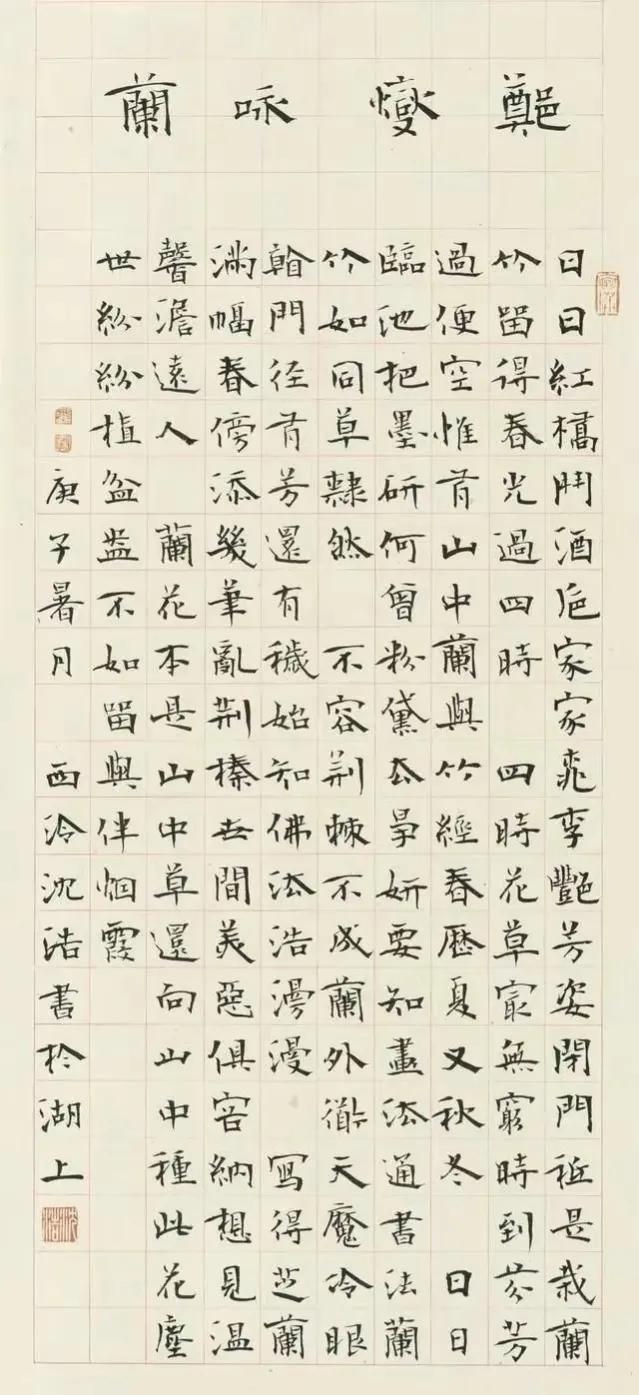 鄭燮咏蘭
日日紅橋鬥酒卮家家桃李豔芳姿閉門祗是栽蘭
竹留得春光過四時 四時花草最無窮時到芬芳
過便空惟有山中蘭與竹經春歷夏又秋冬 日日
臨池把墨研何曾粉黛去爭妍要知畫法通書法蘭
竹如同草隸然 不容荊棘不成蘭外道天魔冷眼
看門徑有芳還有穢始知佛法浩漫漫 寫得芝蘭
滿幅春傍添幾筆亂荊榛世間美惡俱容納想見溫
馨澹遠人 蘭花本是山中草還向山中種此花塵
世紛紛植盆盎不如留與伴烟霞
庚子暑月 西泠沈浩書於湖上